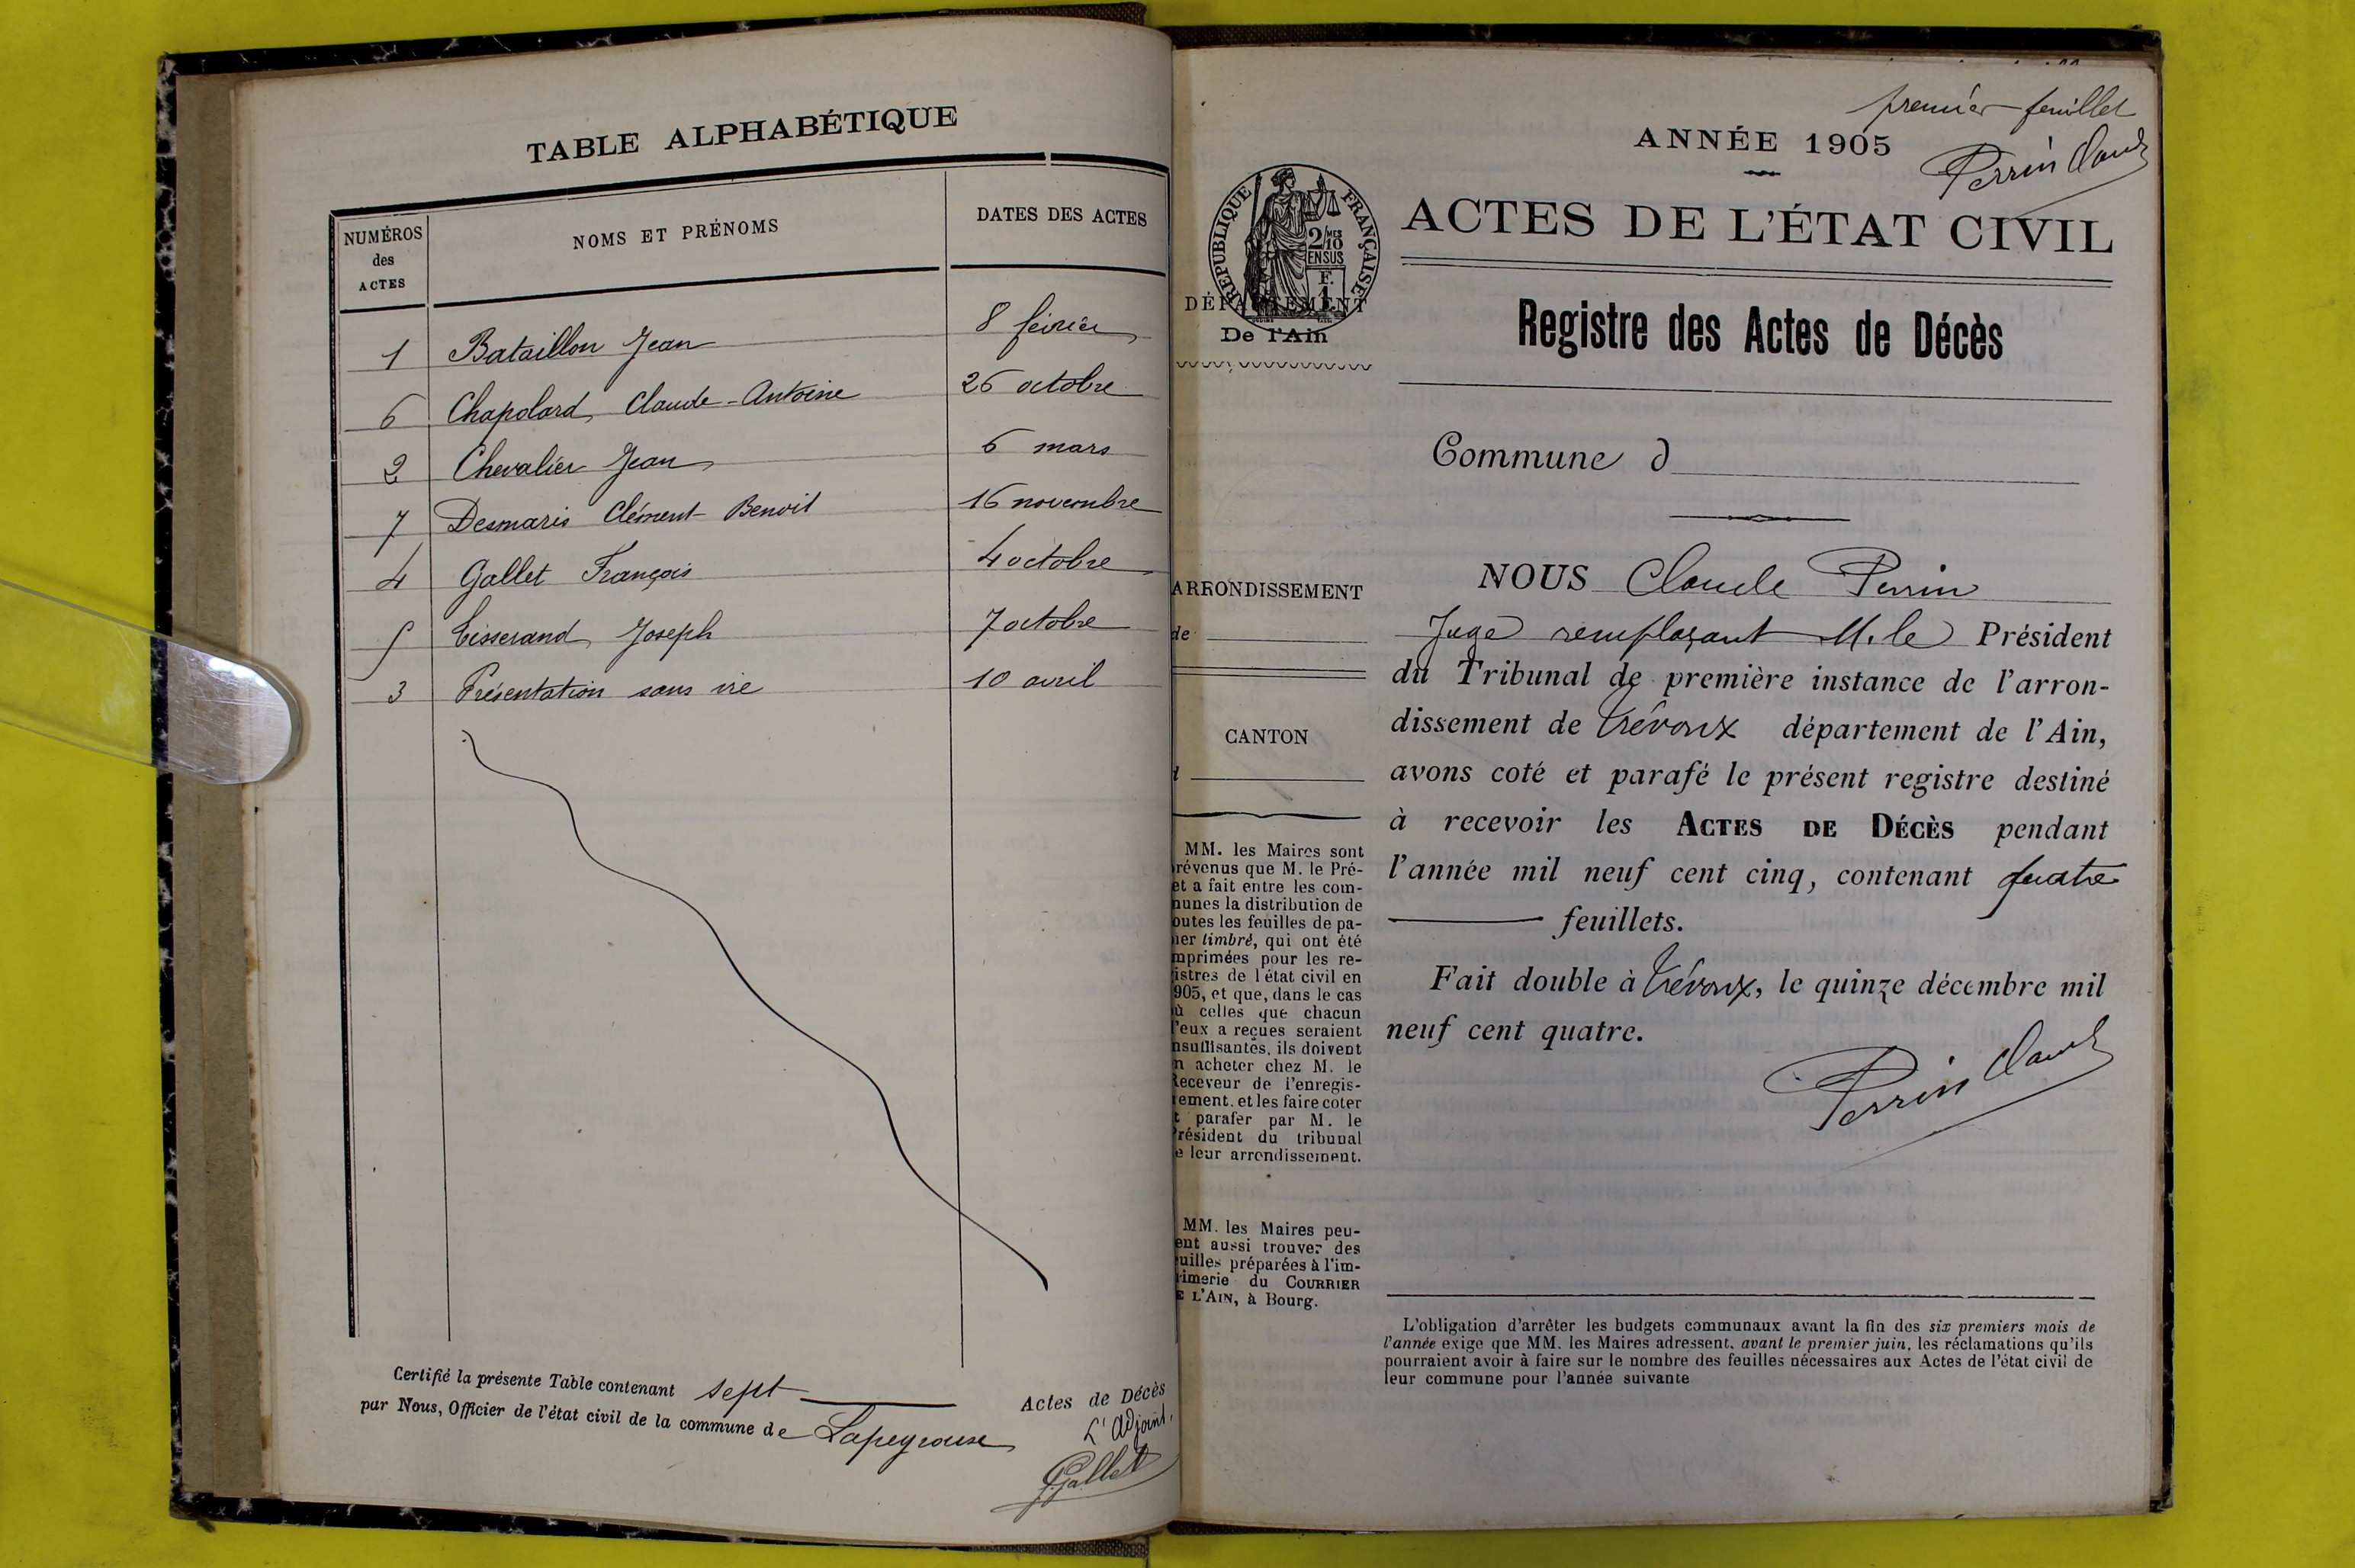 TABLE ALPHABÉTIQUE
NUMÉROS des ACTES
NOMS ET PRÉNOMS
DATES DES ACTES
1 Bataillon Jean 8 février
6 Chapolard Claude-Antoine 26 octobre
2 Chevalier Jean 6 mars
7 Desmaris Clément Benoit 16 novembre
4 Gallet François 4 octobre
5 Tisserand Joseph 7 octobre
3 Présentation sans vie 10 avril
Certifié la présente Table contenant sept Actes de Décès
par Nous, Officier de l'état civil de la commune de Lapeyrouse
L'Adjoint,
Gallet
premier feuillet
Perrin Claude
ANNÉE 1905
ACTES DE L'ÉTAT CIVIL
RÉPUBLIQUE FRANÇAISE
2/10 MES
EN SUS
F.
1
DÉPARTEMENT
De l'Ain
Registre des Actes de Décès
Commune d
ARRONDISSEMENT
de
CANTON
d
MM. les Maires sont
révenus que M. le Pré-
et a fait entre les com-
nunes la distribution de
outes les feuilles de pa-
ier timbré, qui ont été
mprimées pour les re-
istres de l'état civil en
905, et que, dans le cas
ù celles que chacun
d'eux a reçues seraient
nsuffisantes, ils doivent
n acheter chez M. le
Receveur de l'enregis-
rement. et les faire coter
t parafer par M. le
Président du tribunal
e leur arrondissement.
MM. les Maires peu-
ent aussi trouver des
uilles préparées à l'im-
rimerie du COURRIER
E L'AIN, à Bourg.
NOUS Claude Perrin
Juge remplaçant M. le Président
du Tribunal de première instance de l'arron-
dissement de Trévoux département de l'Ain,
avons coté et parafé le présent registre destiné
à recevoir les ACTES DE DÉCÈS pendant
l'année mil neuf cent cinq, contenant quatre
feuillets.
Fait double à Trévoux, le quinze décembre mil
neuf cent quatre.
Perrin Claude
L'obligation d'arrêter les budgets communaux avant la fin des six premiers mois de
l'année exige que MM. les Maires adressent, avant le premier juin, les réclamations qu'ils
pourraient avoir à faire sur le nombre des feuilles nécessaires aux Actes de l'état civil de
leur commune pour l'année suivante